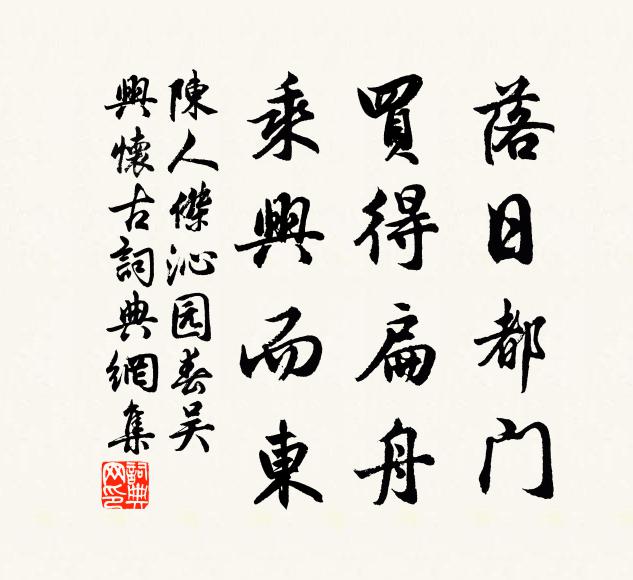 落日都門
買得扁舟
乘興而東
陳人傑沁园春吴
興懷古詞典網集
詞典网印